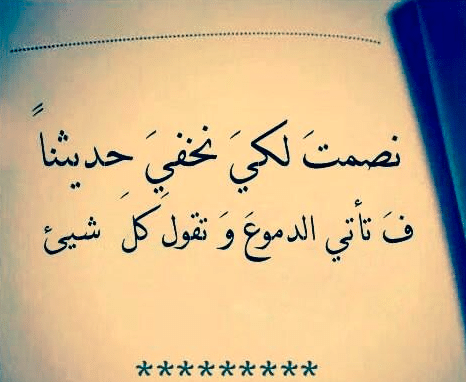 نصمتَ لكيَ نخفيَ حديثناً
فَ تأتي الدموعَ وَ تقول كلَ شيئ
*********